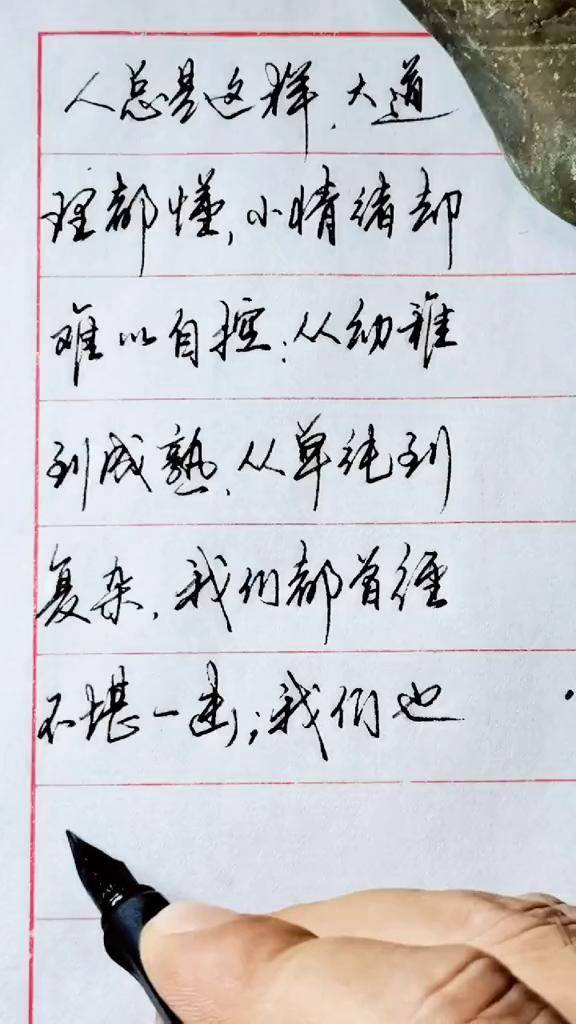 人总是这样,大道
理都懂,小情绪却
难以自控;从幼稚
到成熟,从单纯到
复杂,我们都曾经
不堪一击;我们也